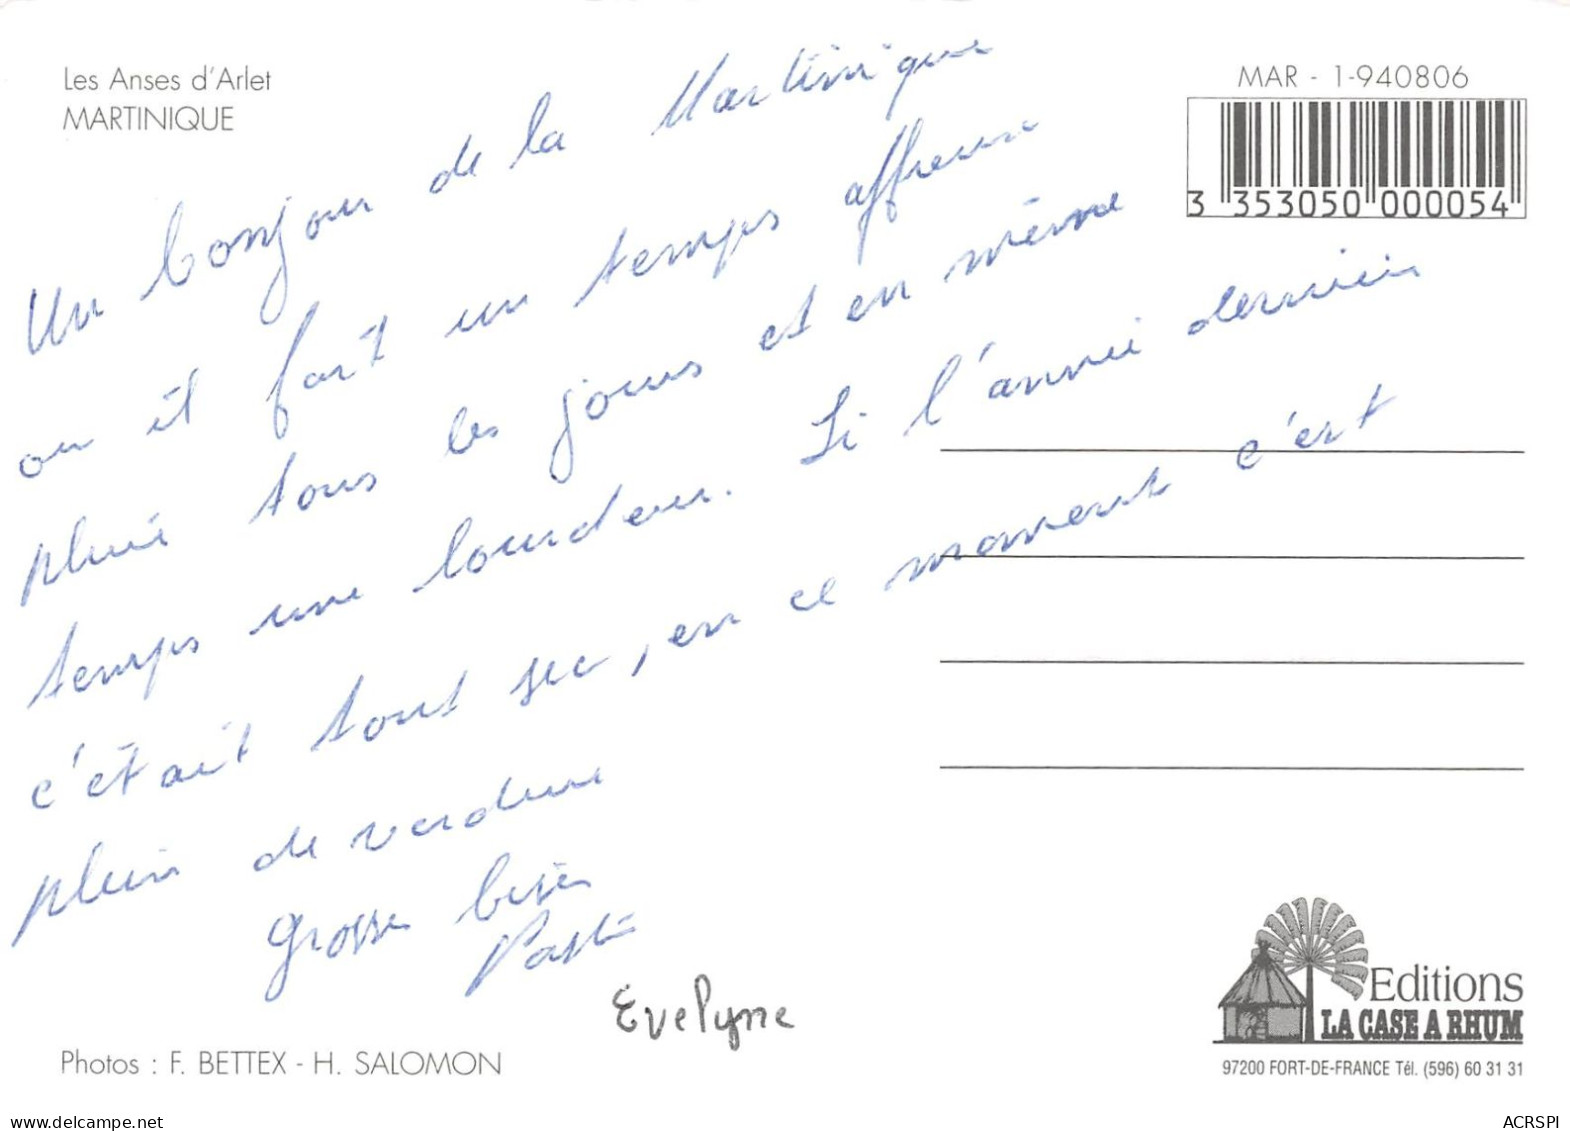 Les Anses d'Arlet
MARTINIQUE
MAR - 1-940806
3 353050 000054
Un bonjour de la Martinique
ou il fait un temps affreux
pluie tous les jours et en même
temps une lourdeur. Si l'année dernier
c'était tout sec, en ce moment c'est
plein de verdure
grosses bises
Evelyne
Photos : F. BETTEX - H. SALOMON
Editions
LA CASE A RHUM
97200 FORT-DE-FRANCE Tél. (596) 60 31 31
www.delcampe.net
ACRSPI